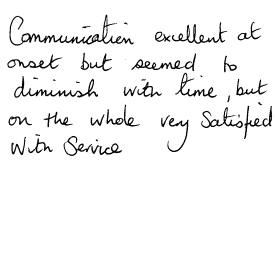 Communication excellent at
onset but seemed to
diminish with time, but
on the whole very Satisfied
With Service